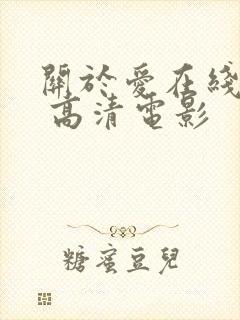 關於愛在綫
高清電影
糖蜜豆兒